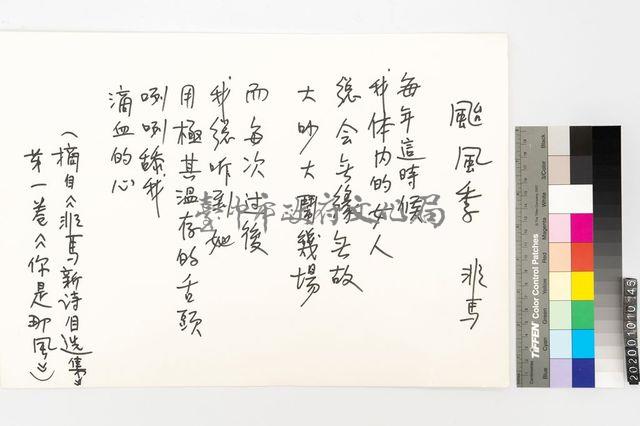 颱風季 非馬
每年這時候
我体内的女人
總会無緣無故
大吵大鬧幾場
而每次过後
我總听到她
用極其温存的舌頭
咧咧舔我
滴血的心
(摘自《非馬新诗自选集》
第一卷《你是那風》)
臺中市政府文化局
TIFFEN Color Control Patches
Blue
Cyan
Green
Yellow
Red
Magenta
White
3/Color
Black
20200101045